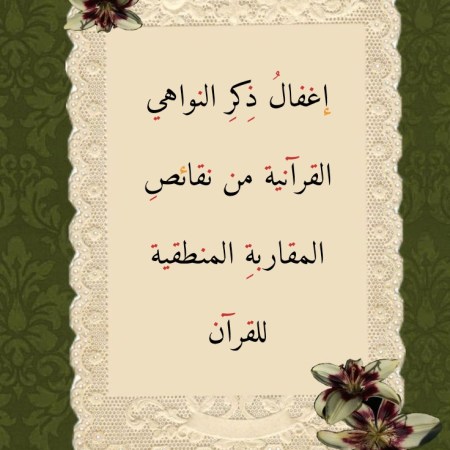 إغفالُ ذِكرِ النواهي
القرآنية من نقائصِ
المقاربةِ المنطقية
للقرآن